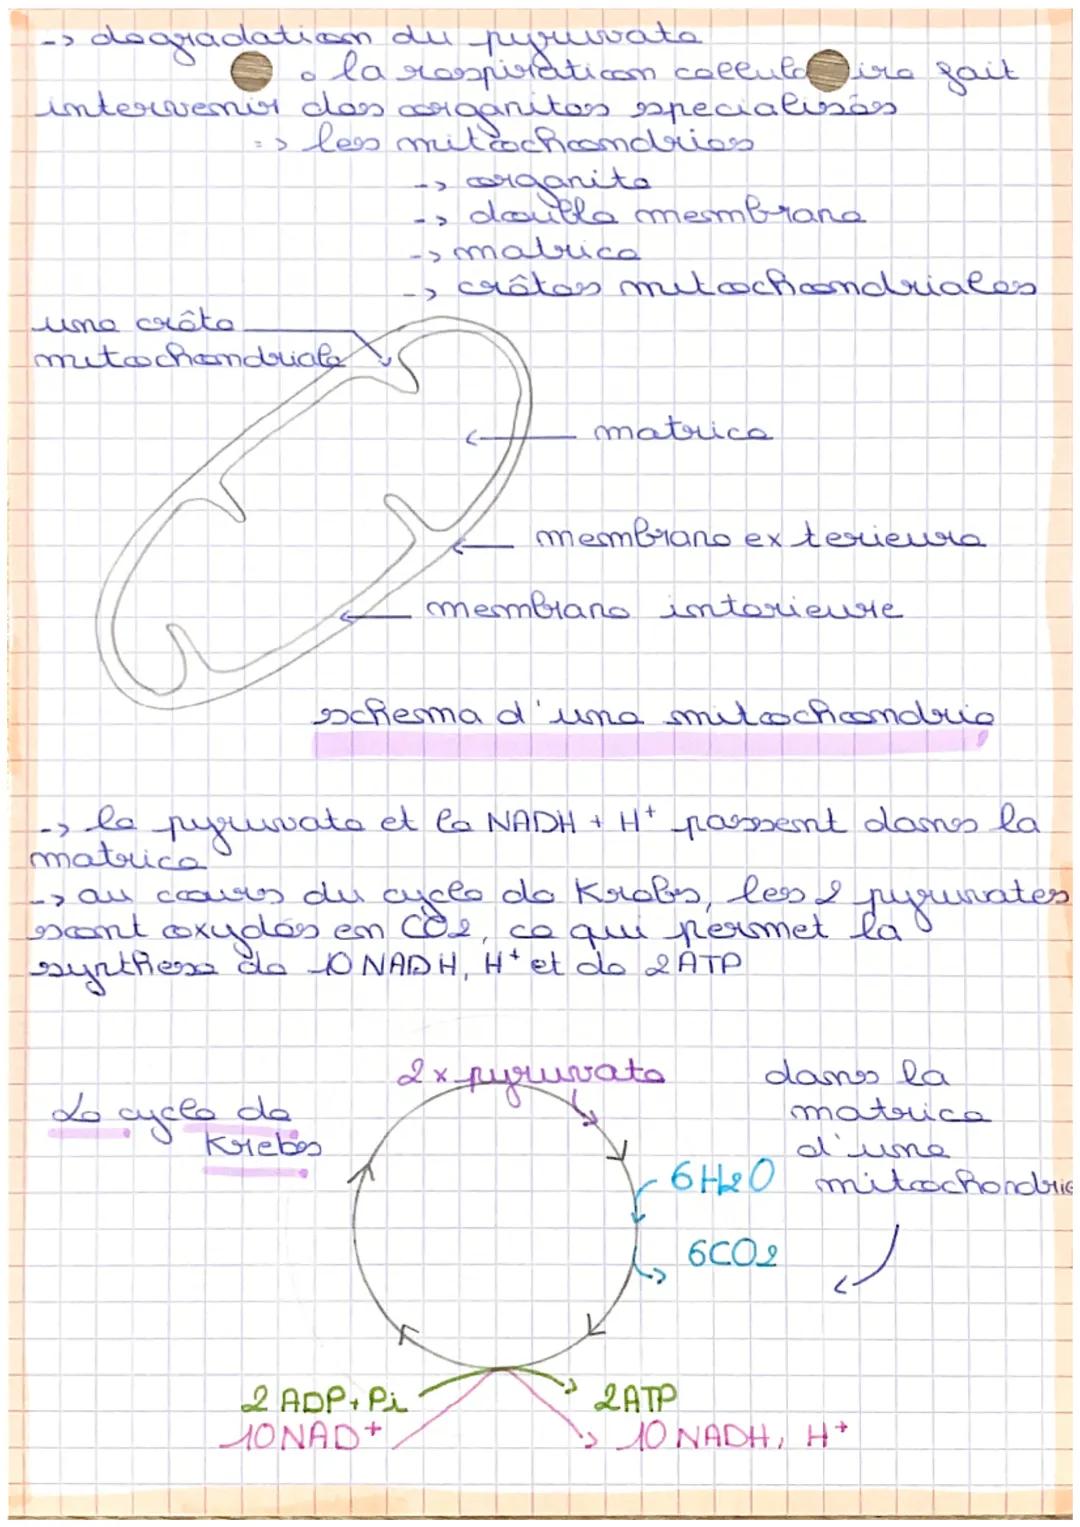 -> dégradation du pyruvate
• la respiration cellulaire fait
intervenir des organites specialisés
=> les mitochondries
-> organite
-> double membrane
-> matrice
-> crêtes mitochondriales
une crête
mitochondriale
matrice
membrane exterieure
membrane interieure
schema d'une mitochondrie
-> le pyruvate et le NADH + H⁺ passent dans la
matrice
-> au cours du cycle de Krebs, les 2 pyruvates
sont oxydés en CO2, ce qui permet la
synthese de 10 NADH, H⁺ et de 2ATP
2 x pyruvate
dans la
matrice
d'une
mitochondrie
Le cycle de
Krebs
6H2O
6CO2
2 ADP + Pi
2ATP
10NAD+
10 NADH, H⁺